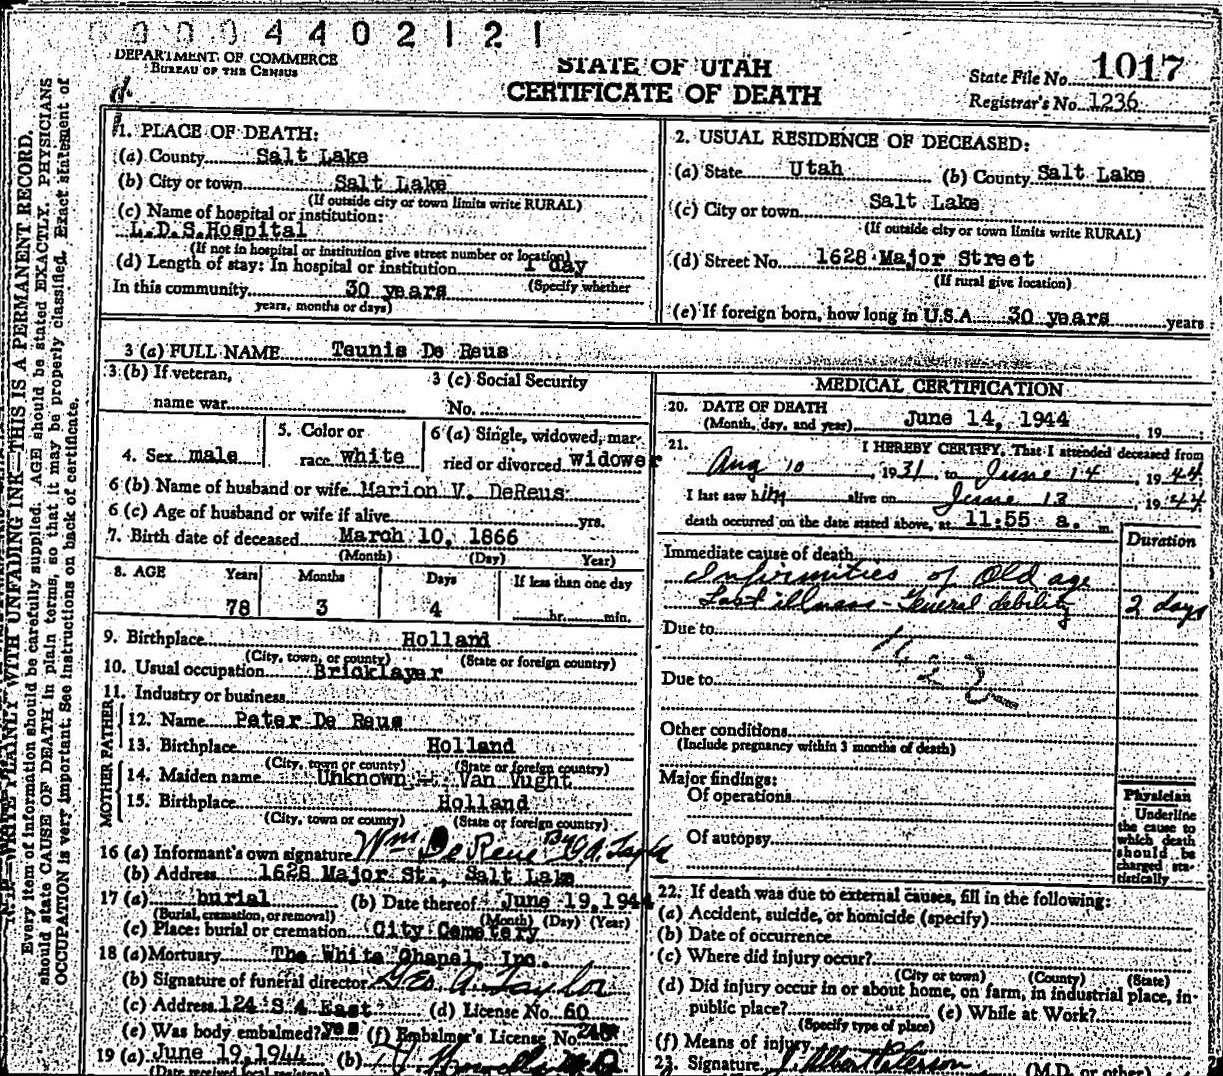 0 0 0 4 4 0 2 1 2 1
DEPARTMENT OF COMMERCE
BUREAU OF THE CENSUS
STATE OF UTAH
CERTIFICATE OF DEATH
State File No. 1017
Registrar's No. 1236
N. B.—WRITE PLAINLY WITH UNFADING INK—THIS IS A PERMANENT RECORD.
Every item of information should be carefully supplied. AGE should be stated EXACTLY. PHYSICIANS
should state CAUSE OF DEATH in plain terms, so that it may be properly classified. Exact statement of
OCCUPATION is very important. See instructions on back of certificate.
1. PLACE OF DEATH:
(a) County Salt Lake
(b) City or town Salt Lake
(If outside city or town limits write RURAL)
(c) Name of hospital or institution:
L.D.S.Hospital
(If not in hospital or institution give street number or location)
(d) Length of stay: In hospital or institution 1 day
In this community 30 years (Specify whether
years, months or days)
2. USUAL RESIDENCE OF DECEASED:
(a) State Utah (b) County Salt Lake
(c) City or town Salt Lake
(If outside city or town limits write RURAL)
(d) Street No. 1628 Major Street
(If rural give location)
(e) If foreign born, how long in U.S.A. 30 years years
3 (a) FULL NAME Teunis De Reus
3 (b) If veteran,
name war
3 (c) Social Security
No.
4. Sex male
5. Color or
race white
6 (a) Single, widowed, mar-
ried or divorced widower
6 (b) Name of husband or wife Marion V. DeReus
6 (c) Age of husband or wife if alive yrs.
7. Birth date of deceased March 10, 1866
(Month) (Day) Year)
8. AGE Years Months Days If less than one day
78 3 4 hr. min.
9. Birthplace Holland
(City, town, or county) (State or foreign country)
10. Usual occupation Bricklayer
11. Industry or business
FATHER
12. Name Peter De Reus
13. Birthplace Holland
(City, town or county) (State or foreign country)
MOTHER
14. Maiden name Unknown - Van Vught
15. Birthplace Holland
(City, town or county) (State or foreign country)
16 (a) Informant's own signature Wm De Reus By G A. Taylor
(b) Address 1628 Major St., Salt Lake
17 (a) burial (b) Date thereof June 19,1944
(Burial, cremation, or removal) (Month) (Day) (Year)
(c) Place: burial or cremation City Cemetery
18 (a) Mortuary The White Chapel, Inc.
(b) Signature of funeral director Geo. A. Taylor
(c) Address 124 S 4 East (d) License No. 60
(e) Was body embalmed? yes (f) Embalmer's License No.
19 (a) June 19,1944 (b)
(Date received local registrar)
MEDICAL CERTIFICATION
20. DATE OF DEATH
(Month, day, and year) June 14, 1944, 19
21. I HEREBY CERTIFY, That I attended deceased from
Aug 10, 1931, to June 14, 1944
I last saw him alive on June 13 1944
death occurred on the date stated above, at 11:55 a. m.
Duration
Immediate cause of death
Infirmities of Old age
Last illness - General debility 2 days
Due to
Due to
Other conditions
(Include pregnancy within 3 months of death)
Major findings:
Of operations
Of autopsy
Physician
Underline
the cause to
which death
should be
charged sta-
tistically
22. If death was due to external causes, fill in the following:
(a) Accident, suicide, or homicide (specify)
(b) Date of occurrence
(c) Where did injury occur?
(City or town) (County) (State)
(d) Did injury occur in or about home, on farm, in industrial place, in-
public place? (e) While at Work?
(Specify type of place)
(f) Means of injury
23. Signature J. Albert Peterson (M.D. or other)